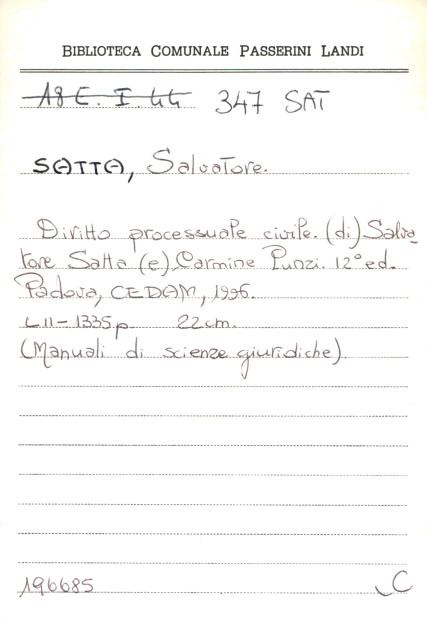 BIBLIOTECA COMUNALE PASSERINI LANDI
18 E. I. 44 347 SAT
SATTA, Salvatore.
Diritto processuale civile. (di) Salva-
tore Satta (e) Carmine Punzi. 12° ed.
Padova, CEDAM, 1996.
LII-1335 p. 22 cm.
(Manuali di scienze giuridiche)
196685 C